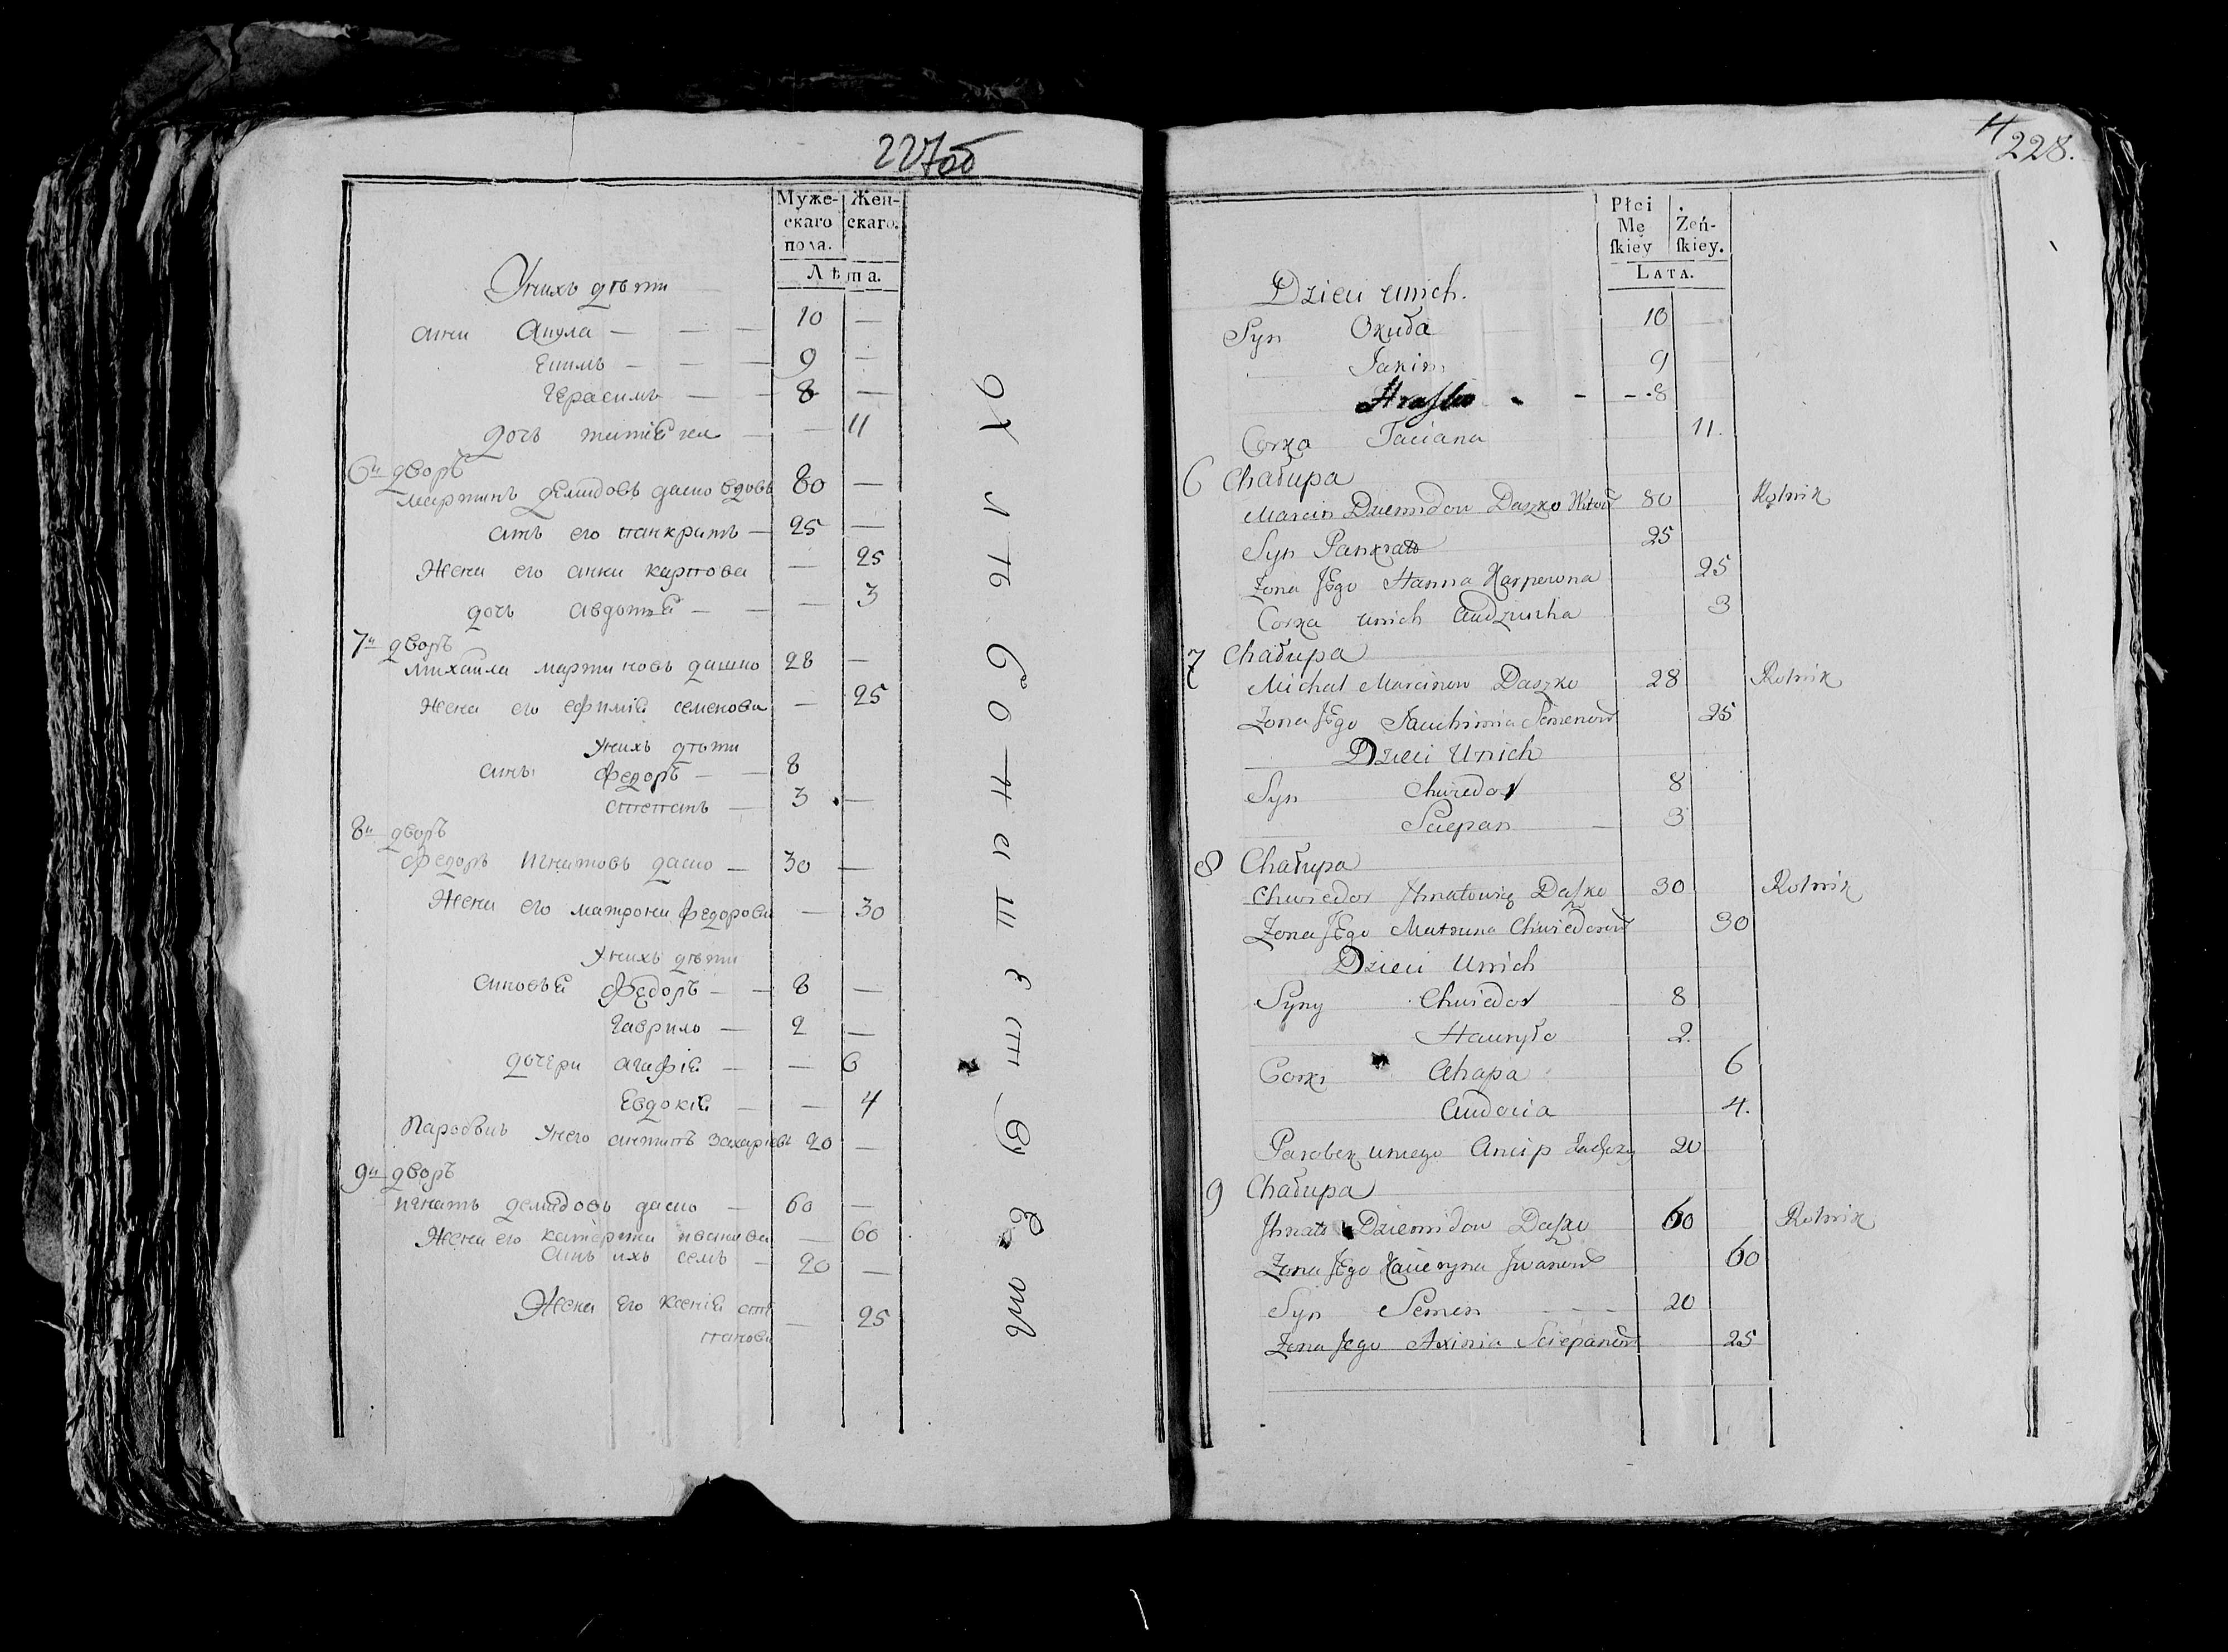 227об
Муже-
скаго
пола.
Жен-
скаго.
Лѣта.
Унихъ дѣти
сини Акула — — — 10 —
Ешимъ — — — 9 —
Герасимъ — — 8 —
дочъ — — 11
6й дворъ
мартинъ демидовъ дашко вдовъ 80 —
синъ его панкратъ — 25 —
Жена его анна карпова — 25
дочъ авдотиа — — — 3
7й дворъ
михаила мартиновъ дашко 28 —
Жена его ефимиа семенова — 25
Унихъ дѣти
синъ федоръ — — 8
степанъ — 3 —
8й дворъ
федоръ игнатовъ дашко — 30 —
Жена его матрона федорова — 30
Унихъ дѣти
синовьа федоръ — — 8 —
гаврило — 2 —
дочери агафіа — — 6
Евдокіа — — 4
Паробькъ унего антипъ захаріевъ 20 —
9й дворъ
игнатъ демидовъ дашко — 60 —
Жена его катерина иванова — 60
синъ ихъ семъ — 20 —
Жена его ксеніа сте
панова — 25
228.
Płci
Mę
ſkiey
Żeń-
ſkiey.
LATA.
Dzieci unich.
Syn Okuła 10
Jakim 9
Hraſko - - - 8
Corka Taciana 11.
6 Chałupa
Marcin Dziemidow Daszko 80 Rolnik
Syn Pankrat 25
Zona JEgo Hanna Karpewna 25
Corka unich Audziucha 3
7 Chałupa
Michal Marcinow Daszko 28 Rolnik
Zona JEgo Jauchimia Semenow 25
Dzieci Unich
Syn Chwiedor 8
Sciepan — 3
8 Chałupa
Chwiedor Jhnatowicz Daſzko 30 Rolnik
Zona JEgo Matruna Chwiedorow 30
Dzieci Unich
Syny Chwiedor 8
Hauryło 2.
Corki Ahapa 6
Audocia 4.
Parobek uniego Ancip 20
9 Chałupa
Jhnat Dziemidow Daſzko 60 Rolnik
Zona JEgo Kacieryna Jwanow 60
Syn Semen — — — 20
Zona Jego Axinia Sciepanow 25